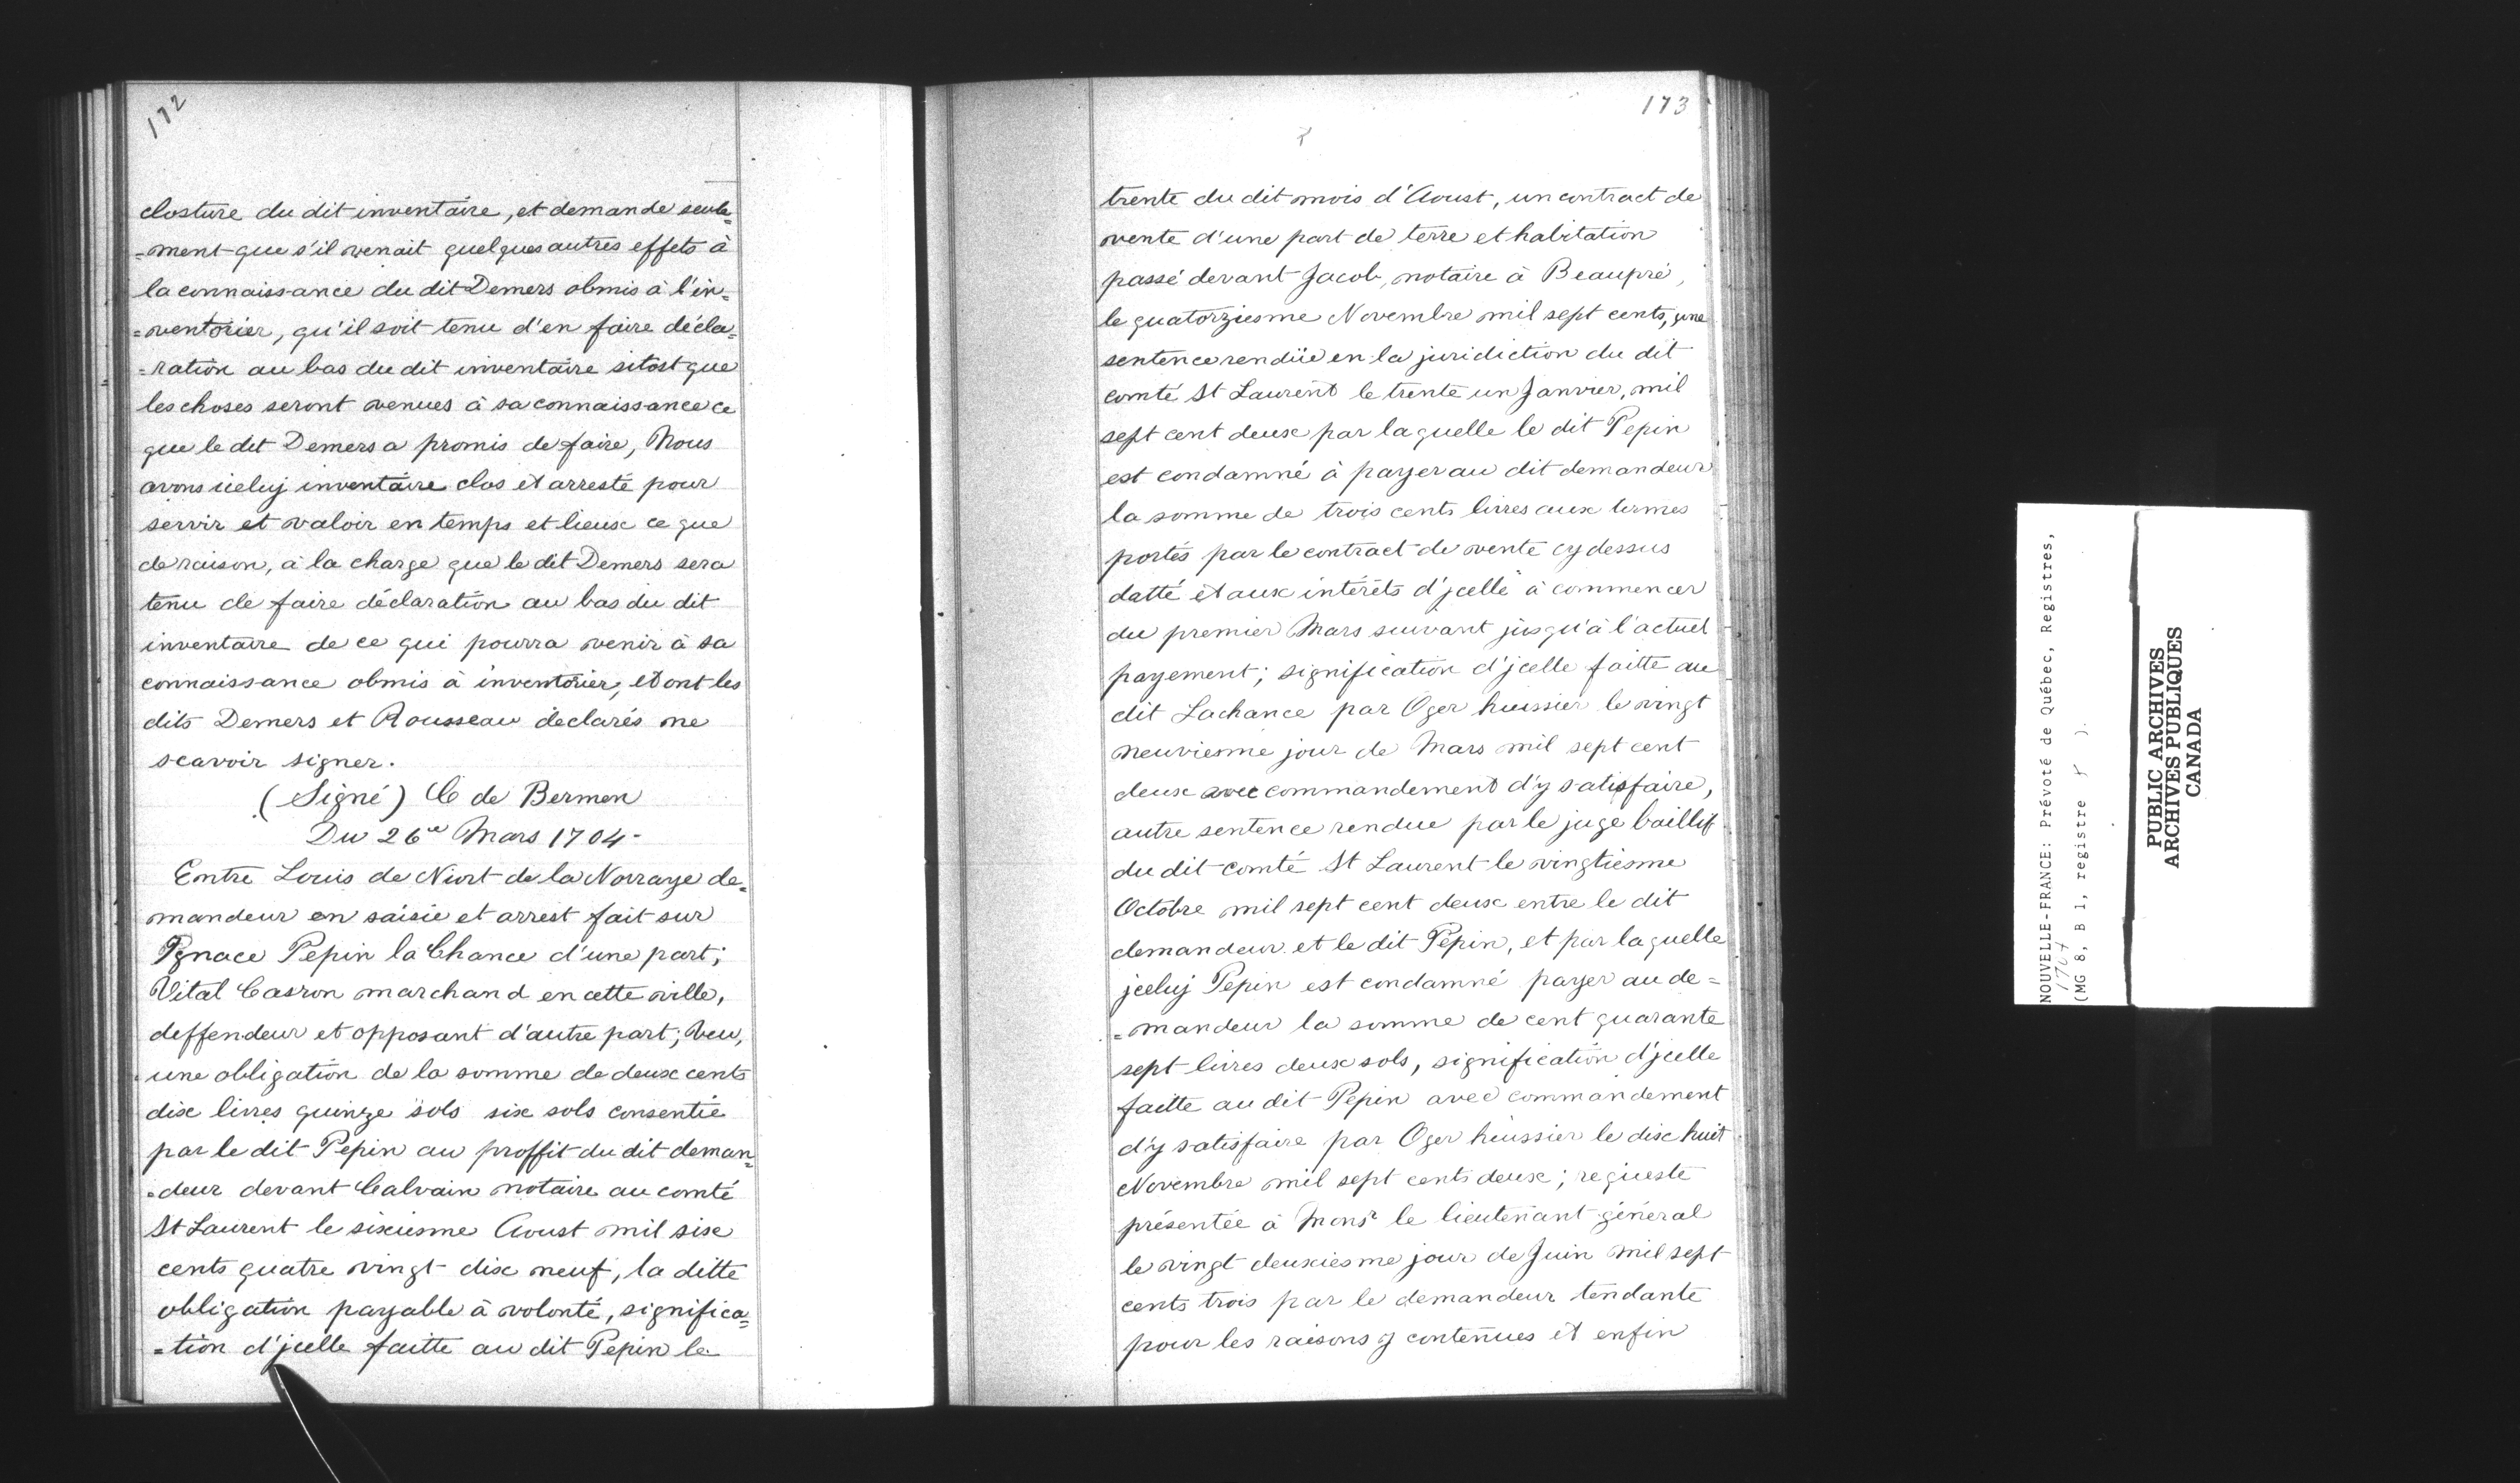 172
closture du dit inventaire, et demande seule=
=ment que s'il venait quelques autres effets à
la connaissance du dit Demers obmis à l'in=
=ventorier, qu'il soit tenu d'en faire décla=
=ration au bas du dit inventaire sitost que
les choses seront venues à sa connaissance ce
que le dit Demers a promis de faire, Nous
avons iceluy inventaire clos et arresté pour
servir et valoir en temps et lieux ce que
de raison, à la charge que le dit Demers sera
tenu de faire déclaration au bas du dit
inventaire de ce qui pourra venir à sa
connaissance obmis à inventorier, et ont les
dits Demers et Rousseau déclarés ne
scavoir signer.
(Signé) C de Bermen
Du 26e Mars 1704-
Entre Louis de Niort de la Norraye de=
mandeur en saisie et arrest fait sur
Ignace Pepin la Chance d'une part;
Vital Casron marchand en cette ville,
deffendeur et opposant d'autre part; Veu,
une obligation de la somme de deux cents
dix livres quinze sols six sols consentie
par le dit Pepin au proffit du dit deman=
=deur devant Calvain notaire au comté
St Laurent le sixiesme Aoust mil six
cents quatre vingt dix neuf, la ditte
obligation payable à volonté, significa=
=tion d'jcelle faitte au dit Pepin le
173
trente du dit mois d'Aoust, un contract de
vente d'une part de terre et habitation
passé devant Jacob, notaire à Beaupré,
le quatorziesme Novembre mil sept cents, une
sentence rendüe en la juridiction du dit
comté St Laurent le trente un Janvier, mil
sept cent deux par laquelle le dit Pepin
est condamné à payer au dit demandeur
la somme de trois cents livres aux termes
portés par le contract de vente cy dessus
datté et aux intérêts d'jcelle à commencer
du premier Mars suivant jusqu'à l'actuel
payement; signification d'jcelle faitte au
dit Lachance par Oger huissier le vingt
neuviesme jour de Mars mil sept cent
deux avec commandement d'y satisfaire,
autre sentence rendue par le juge baillif
du dit comté St Laurent le vingtiesme
Octobre mil sept cent deux entre le dit
demandeur et le dit Pepin, et par laquelle
jceluy Pepin est condamné payer au de=
=mandeur la somme de cent quarante
sept livres deux sols, signification d'jcelle
faitte au dit Pepin avec commandement
d'y satisfaire par Oger huissier le dix huit
Novembre mil sept cents deux; requeste
présentée à Monsr le lieutenant général
le vingt deuxiesme jour de Juin mil sept
cents trois par le demandeur tendante
pour les raisons y contenues et enfin
NOUVELLE-FRANCE: Prévôté de Québec, Registres,
1704
(MG 8, B 1, registre 8 ).
PUBLIC ARCHIVES
ARCHIVES PUBLIQUES
CANADA